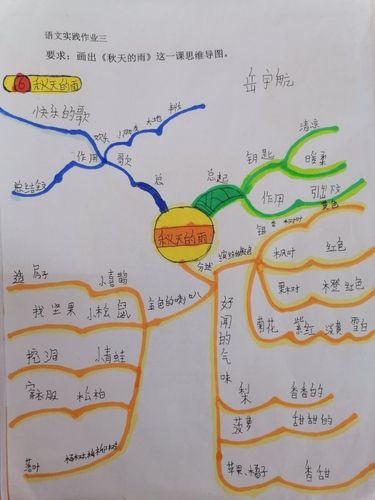 语文实践作业三
要求：画出《秋天的雨》这一课思维导图。
6 秋天的雨
岳宇航
秋天的雨
总起
钥匙
清凉
温柔
作用
引出下文
分述
缤纷的颜色
银杏树
黄色
枫叶
红色
果树
橙红色
菊花
紫红 淡黄 雪白
好闻的气味
梨
香香的
菠萝
甜甜的
苹果、橘子
香甜
金色的喇叭
小喜鹊
造房子
小松鼠
找坚果
小青蛙
挖洞
松柏
穿衣服
落叶
总
歌
欢乐
小朋友
大地
作用
快乐的歌
总结全文